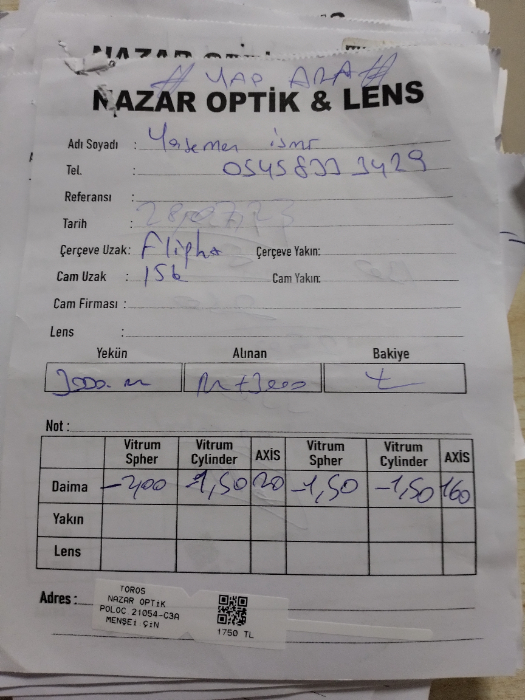 NAZAR OPTİK
# YAP ARA #
NAZAR OPTİK & LENS
Adı Soyadı : Yasemen
Tel. : 0545 833 3429
Referansı :
Tarih :
Çerçeve Uzak: Çerçeve Yakın:
Cam Uzak : 156 Cam Yakın:
Cam Firması :
Lens :
Yekün Alınan Bakiye
3000.
Not :
Vitrum Spher Vitrum Cylinder AXİS Vitrum Spher Vitrum Cylinder AXİS
Daima -1,50 20 -1,50 -1,50 160
Yakın
Lens
Adres :
TOROS
NAZAR OPTİK
POLOC 21054-C3A
MENŞEİ ÇİN
1750 TL